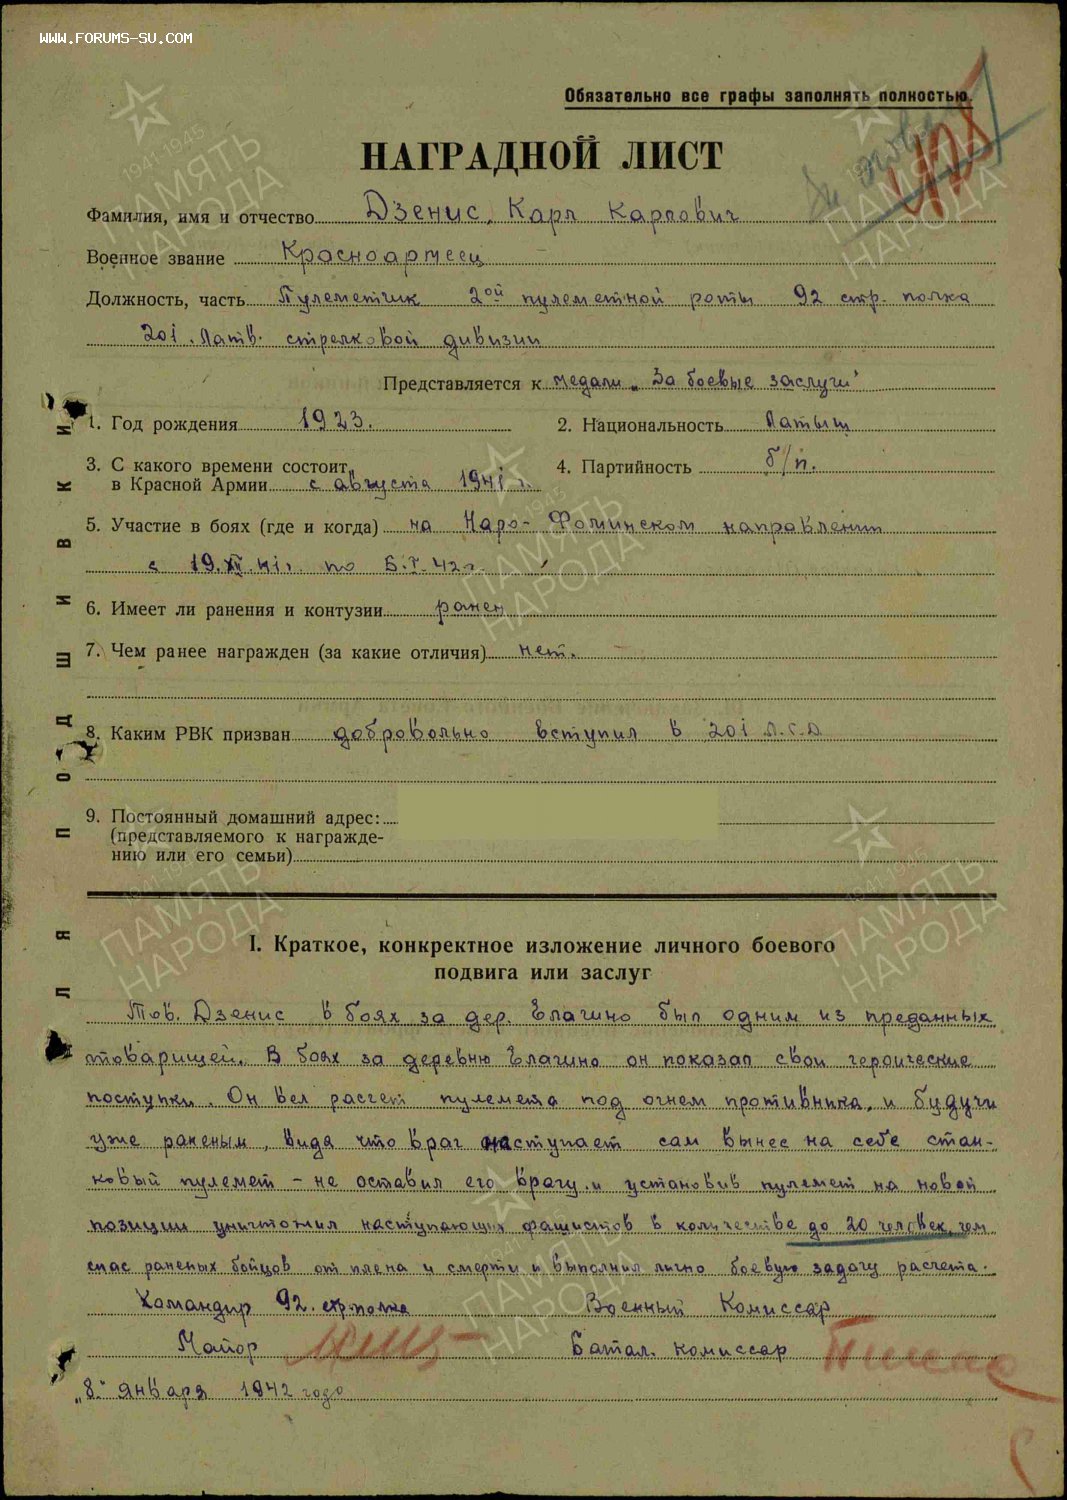 WWW.FORUMS-SU.COM
Обязательно все графы заполнять полностью.
НАГРАДНОЙ ЛИСТ
Фамилия, имя и отчество Дзенис, Карл Карлович
Военное звание Красноармеец
Должность, часть Пулеметчик 2ой пулеметной роты 92 стр. полка
201. Латв. стрелковой дивизии
Представляется к медали „За боевые заслуги"
1. Год рождения 1923.
2. Национальность Латыш
3. С какого времени состоит
в Красной Армии с августа 1941 г.
4. Партийность б/п.
5. Участие в боях (где и когда) на Наро-Фоминском направлении
с 19.XII.41г. по 5.I.42г.
6. Имеет ли ранения и контузии ранен
7. Чем ранее награжден (за какие отличия) нет.
8. Каким РВК призван добровольно вступил в 201 Л.С.Д
9. Постоянный домашний адрес:
(представляемого к награжде-
нию или его семьи)
ДЛЯ ПОДШИВКИ
I. Краткое, конкректное изложение личного боевого
подвига или заслуг
Тов. Дзенис в боях за дер. Елагино был одним из преданных
товарищей. В боях за деревню Елагино он показал свои героические
поступки. Он вел расчет пулемета под огнем противника, и будучи
уже раненым, видя что враг наступает сам вынес на себе стан-
ковый пулемет – не оставил его врагу и установив пулемет на новой
позиции уничтожил наступающих фашистов в количестве до 20 человек, чем
спас раненых бойцов от плена и смерти и выполнил лично боевую задачу расчета.
Командир 92. стр. полка
Военный Комиссар
Майор
Батал. комиссар
„8." января 1942 года
1941-1945
ПАМЯТЬ
НАРОДА